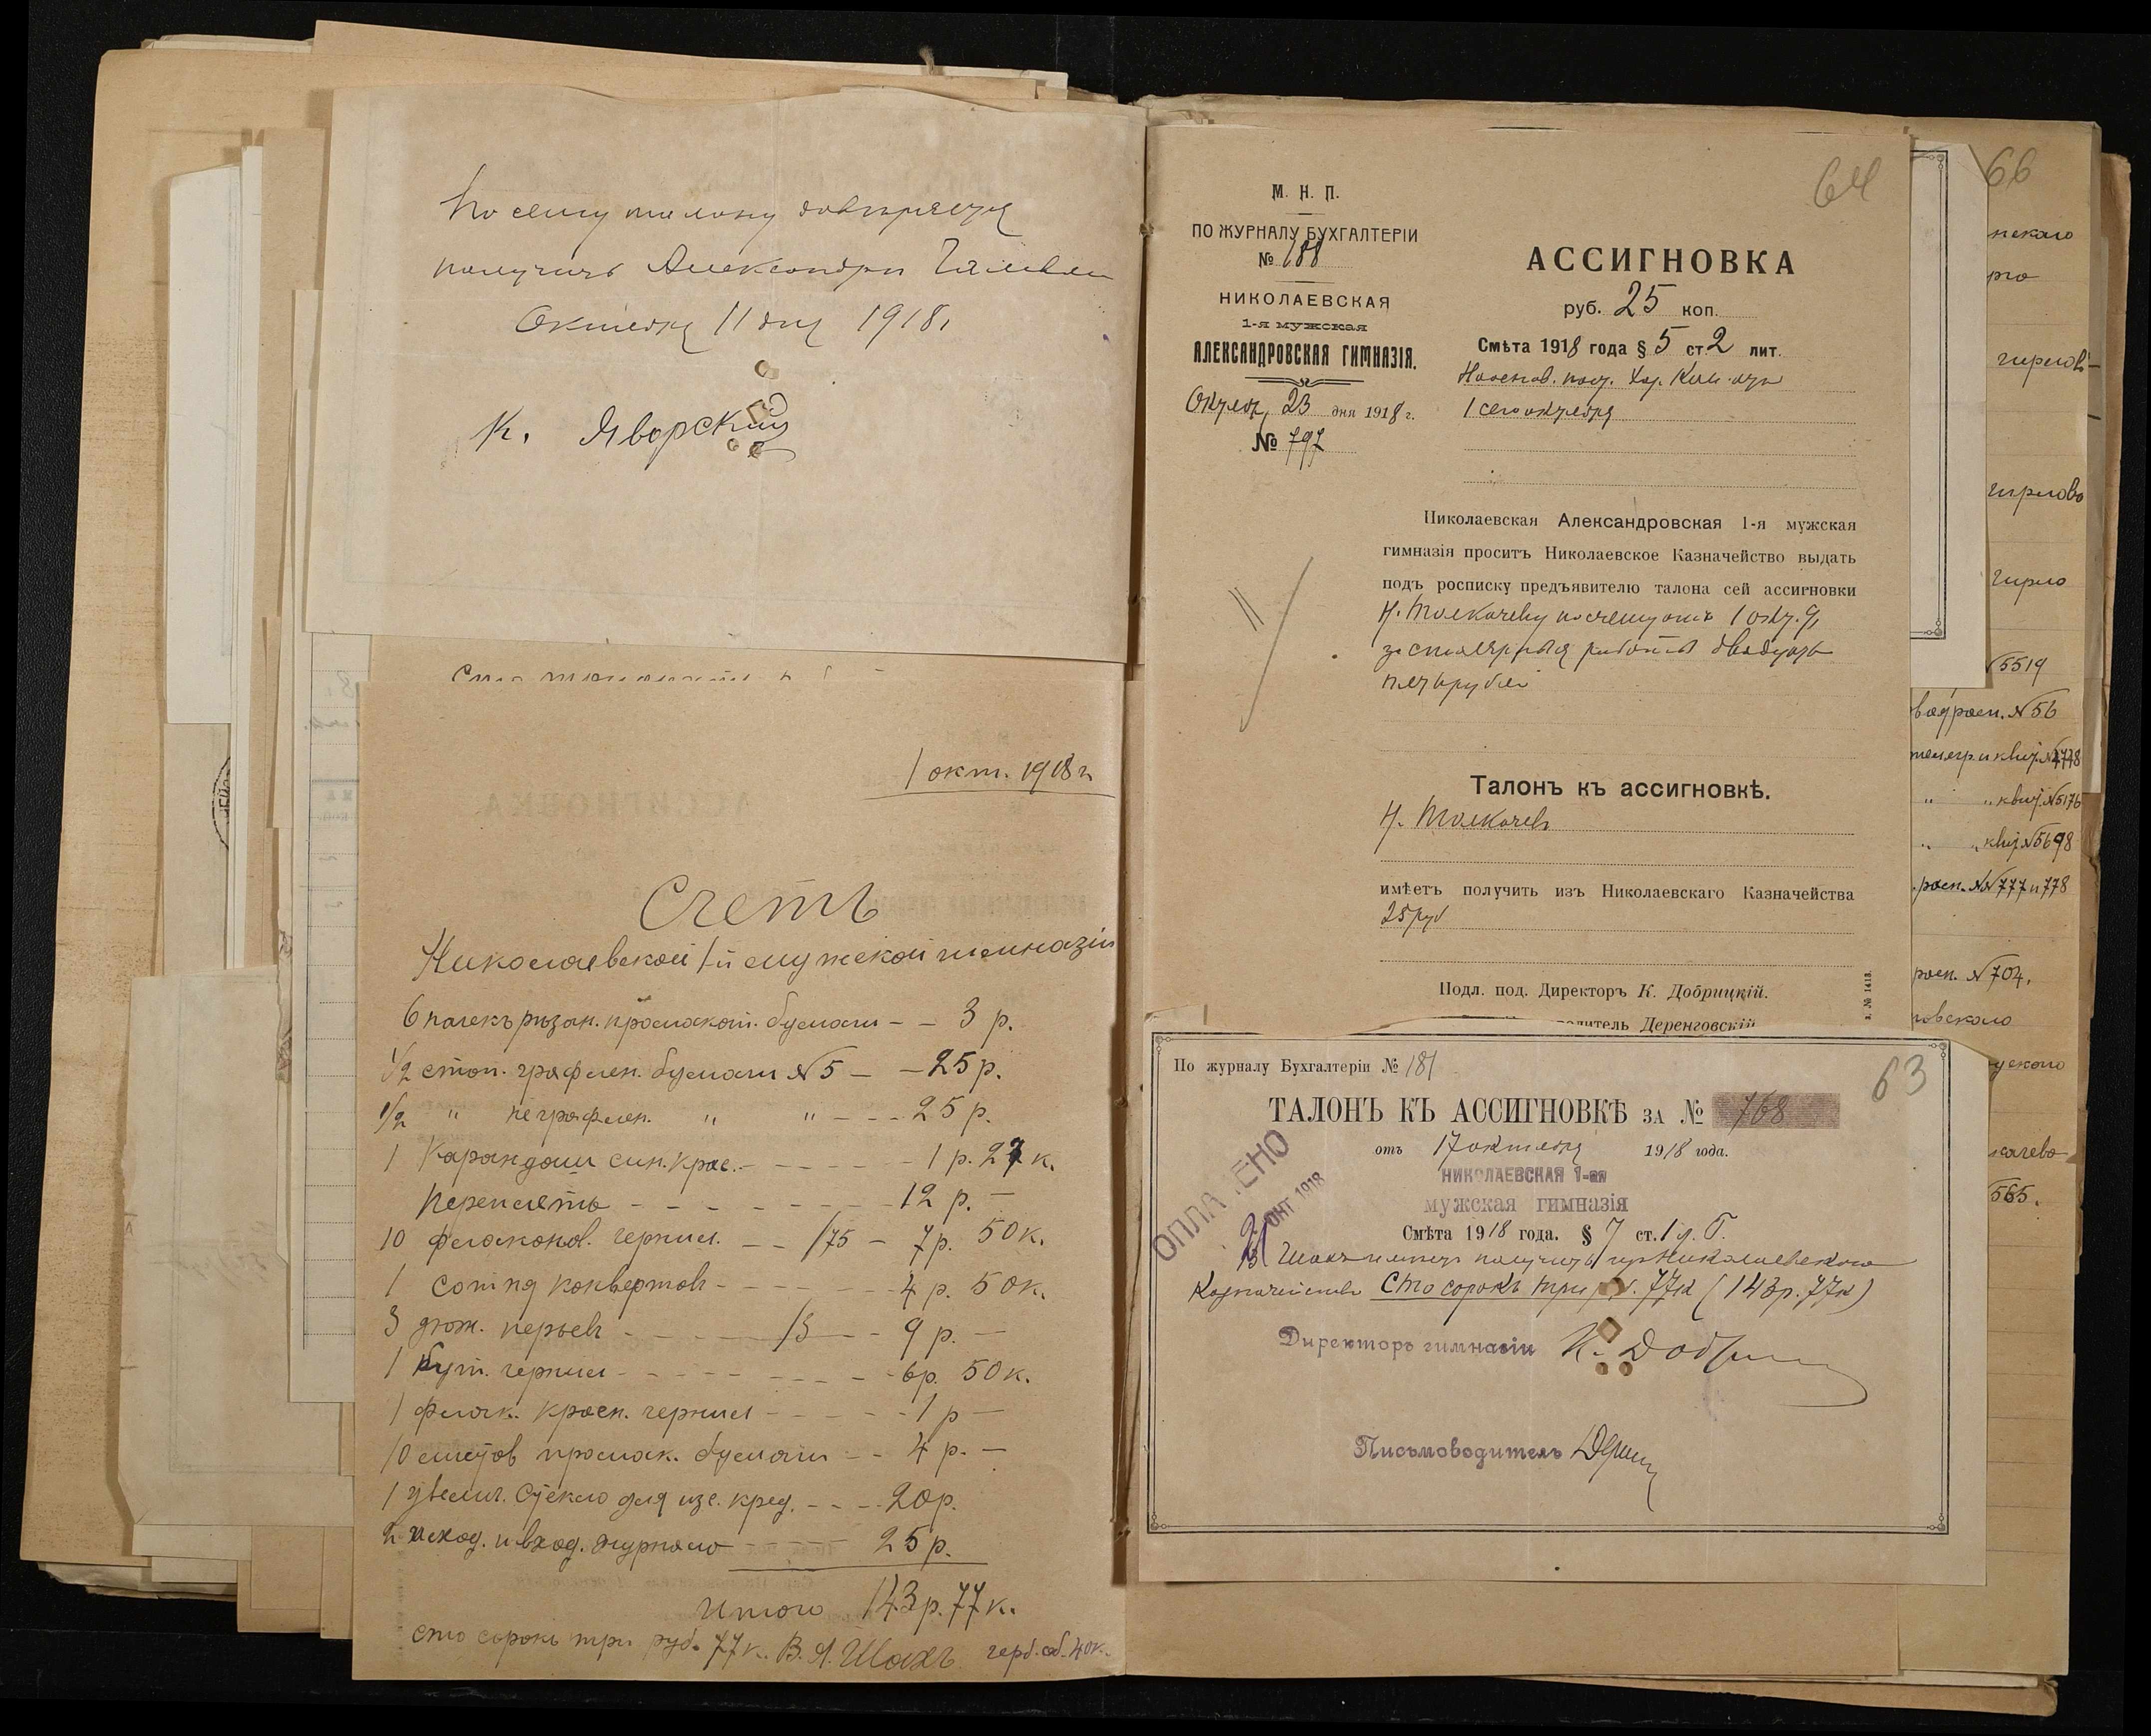 По сему талону доверяется
получить Александру
Октября 11 дня 1918 г.
К. Яворский
1 окт. 1918 г.
Счетъ
Николаевской 1-й мужской гимназіи
6 пачекъ рѣзан. промокат. бумаги - - 3 р.
1/2 стоп. графлен. бумаги № 5 - - 25 р.
1/2 " неграфлен. " " - - - 25 р.
1 карандаш син. крас. - - - - - 1 р. 27 к.
Переплетъ - - - - - - - 12 р. -
10 флаконов. чернил. - - /75 - 7 р. 50 к.
1 сотня конвертовъ - - - - - 4 р. 50 к.
3 дюж. перьевъ - - - - /3 - - 9 р. -
1 бут. чернил - - - - - - - 6 р. 50 к.
1 флак. красн. чернил - - - - - 1 р -
10 листов промок. бумаги - - 4 р. -
1 увелич. стекло для изс. кред. - - - 20 р.
2 исход. и вход. журнала - - - - 25 р.
Итого 143 р. 77 к.
сто сорокъ три руб. 77 к. В. А. Шахъ герб. сб. 40 к.
64
М. Н. П.
ПО ЖУРНАЛУ БУХГАЛТЕРІИ
№ 188
НИКОЛАЕВСКАЯ
1-я мужская
АЛЕКСАНДРОВСКАЯ ГИМНАЗІЯ.
Октяб. 23 дня 1918 г.
№ 797
АССИГНОВКА
руб. 25 коп.
Смѣта 1918 года § 5 ст. 2 лит.
1 сего октября
Николаевская Александровская 1-я мужская
гимназія проситъ Николаевское Казначейство выдать
подъ росписку предъявителю талона сей ассигновки
Н. Толкачеву по счету отъ 1 окт. г.
за столярныя работы двадцать
пять рублей
Талонъ къ ассигновкѣ.
Н. Толкачевъ
имѣетъ получить изъ Николаевскаго Казначейства
25 руб
Подл. под. Директоръ К. Добрицкій.
водитель Деренговскій
з. № 1413.
63
По журналу Бухгалтеріи № 181
ТАЛОНЪ КЪ АССИГНОВКѢ ЗА № 768
отъ 17 октября 1918 года.
НИКОЛАЕВСКАЯ 1-ая
мужская гимназія
Смѣта 1918 года. § 7 ст. 1 л. Г.
ОПЛАЧЕНО
21 ОКТ 1918
В. Шахъ имѣетъ получить изъ Николаевского
Казначейства Сто сорокъ три р. 77 к (143 р. 77 к)
Директоръ гимназіи К. Добриц
Письмоводитель Дерен
66
нскаго
5519
расп. № 56
телегр и квит. № 4778
" " квит. № 5176
" " квит. № 5698
расп. №№ 777 и 778
расп. № 704.
565.